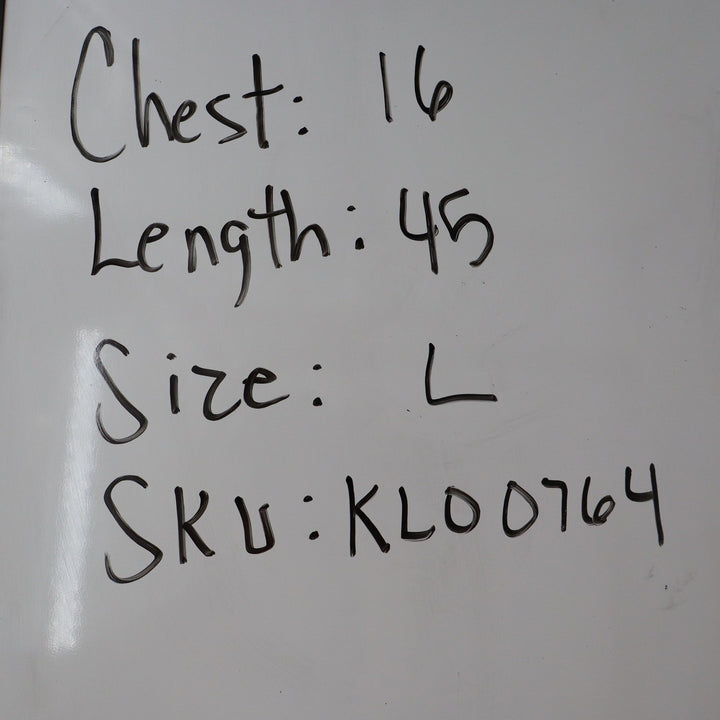 Chest: 16
Length: 45
Size: L
SKU: KL00764